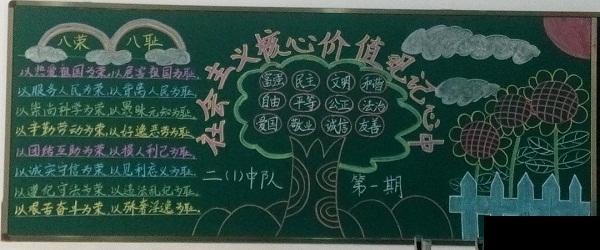 社会主义核心价值观记心中
八荣 八耻
以热爱祖国为荣,以危害祖国为耻
以服务人民为荣,以背离人民为耻
以崇尚科学为荣,以愚昧无知为耻
以辛勤劳动为荣,以好逸恶劳为耻
以团结互助为荣,以损人利己为耻
以诚实守信为荣,以见利忘义为耻
以遵纪守法为荣,以违法乱纪为耻
以艰苦奋斗为荣,以骄奢淫逸为耻
富强 民主 文明 和谐
自由 平等 公正 法治
爱国 敬业 诚信 友善
二(1)中队
第一期